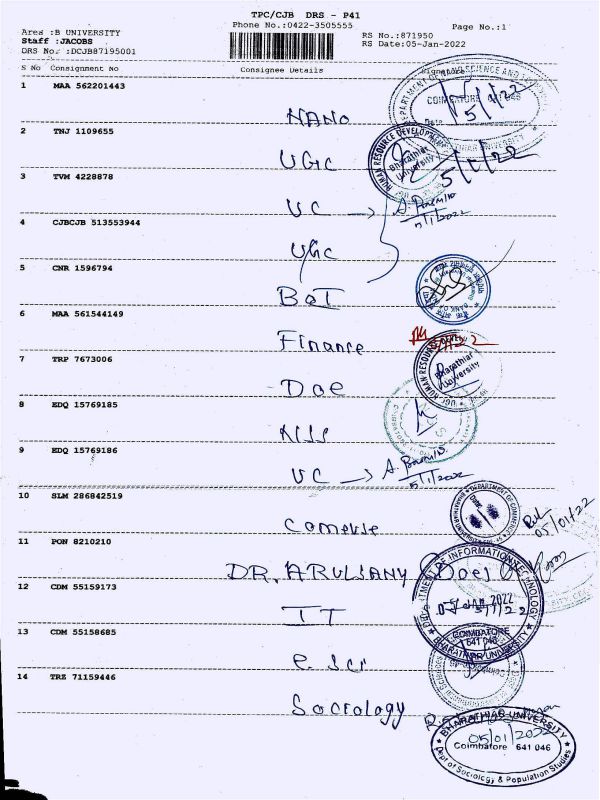 TPC/CJB DRS - P41
Phone No.:0422-3505555
Page No.:1
Area :B UNIVERSITY
Staff :JACOBS
DRS No.: :DCJB87195001
RS No.:871950
RS Date:05-Jan-2022
S No Consignment No Consignee Details Signature
1 MAA 562201443
NANO
2 TNJ 1109655
UGC
3 TVM 4228878
UC
5/1/2022
4 CJBCJB 513553944
UGC
5 CNR 1596794
BOI
6 MAA 561544149
Finance
7 TRP 7673006
Doe
8 EDQ 15769185
NSS
9 EDQ 15769186
UC
5/1/2022
10 SLM 286842519
Comerse
05/01/22
11 PON 8210210
DR. ARULSAMY (Doe)
12 CDM 55159173
IT
13 CDM 55158685
e. Sci
14 TRZ 71159446
Sociology
DEPARTMENT OF NANO SCIENCE AND
COIMBATORE
5/1/22
HUMAN RESOURCE DEVELOPMENT
Bharathiar University
5/1/22
Bharathiar University
DEPARTMENT OF COMMERCE
DEPARTMENT OF INFORMATION TECHNOLOGY
05 JAN 2022
COIMBATORE
641 046
BHARATHIAR UNIVERSITY
BHARATHIAR UNIVERSITY
05/01/2022
Coimbatore 641 046
Dept of Sociology & Population Studies